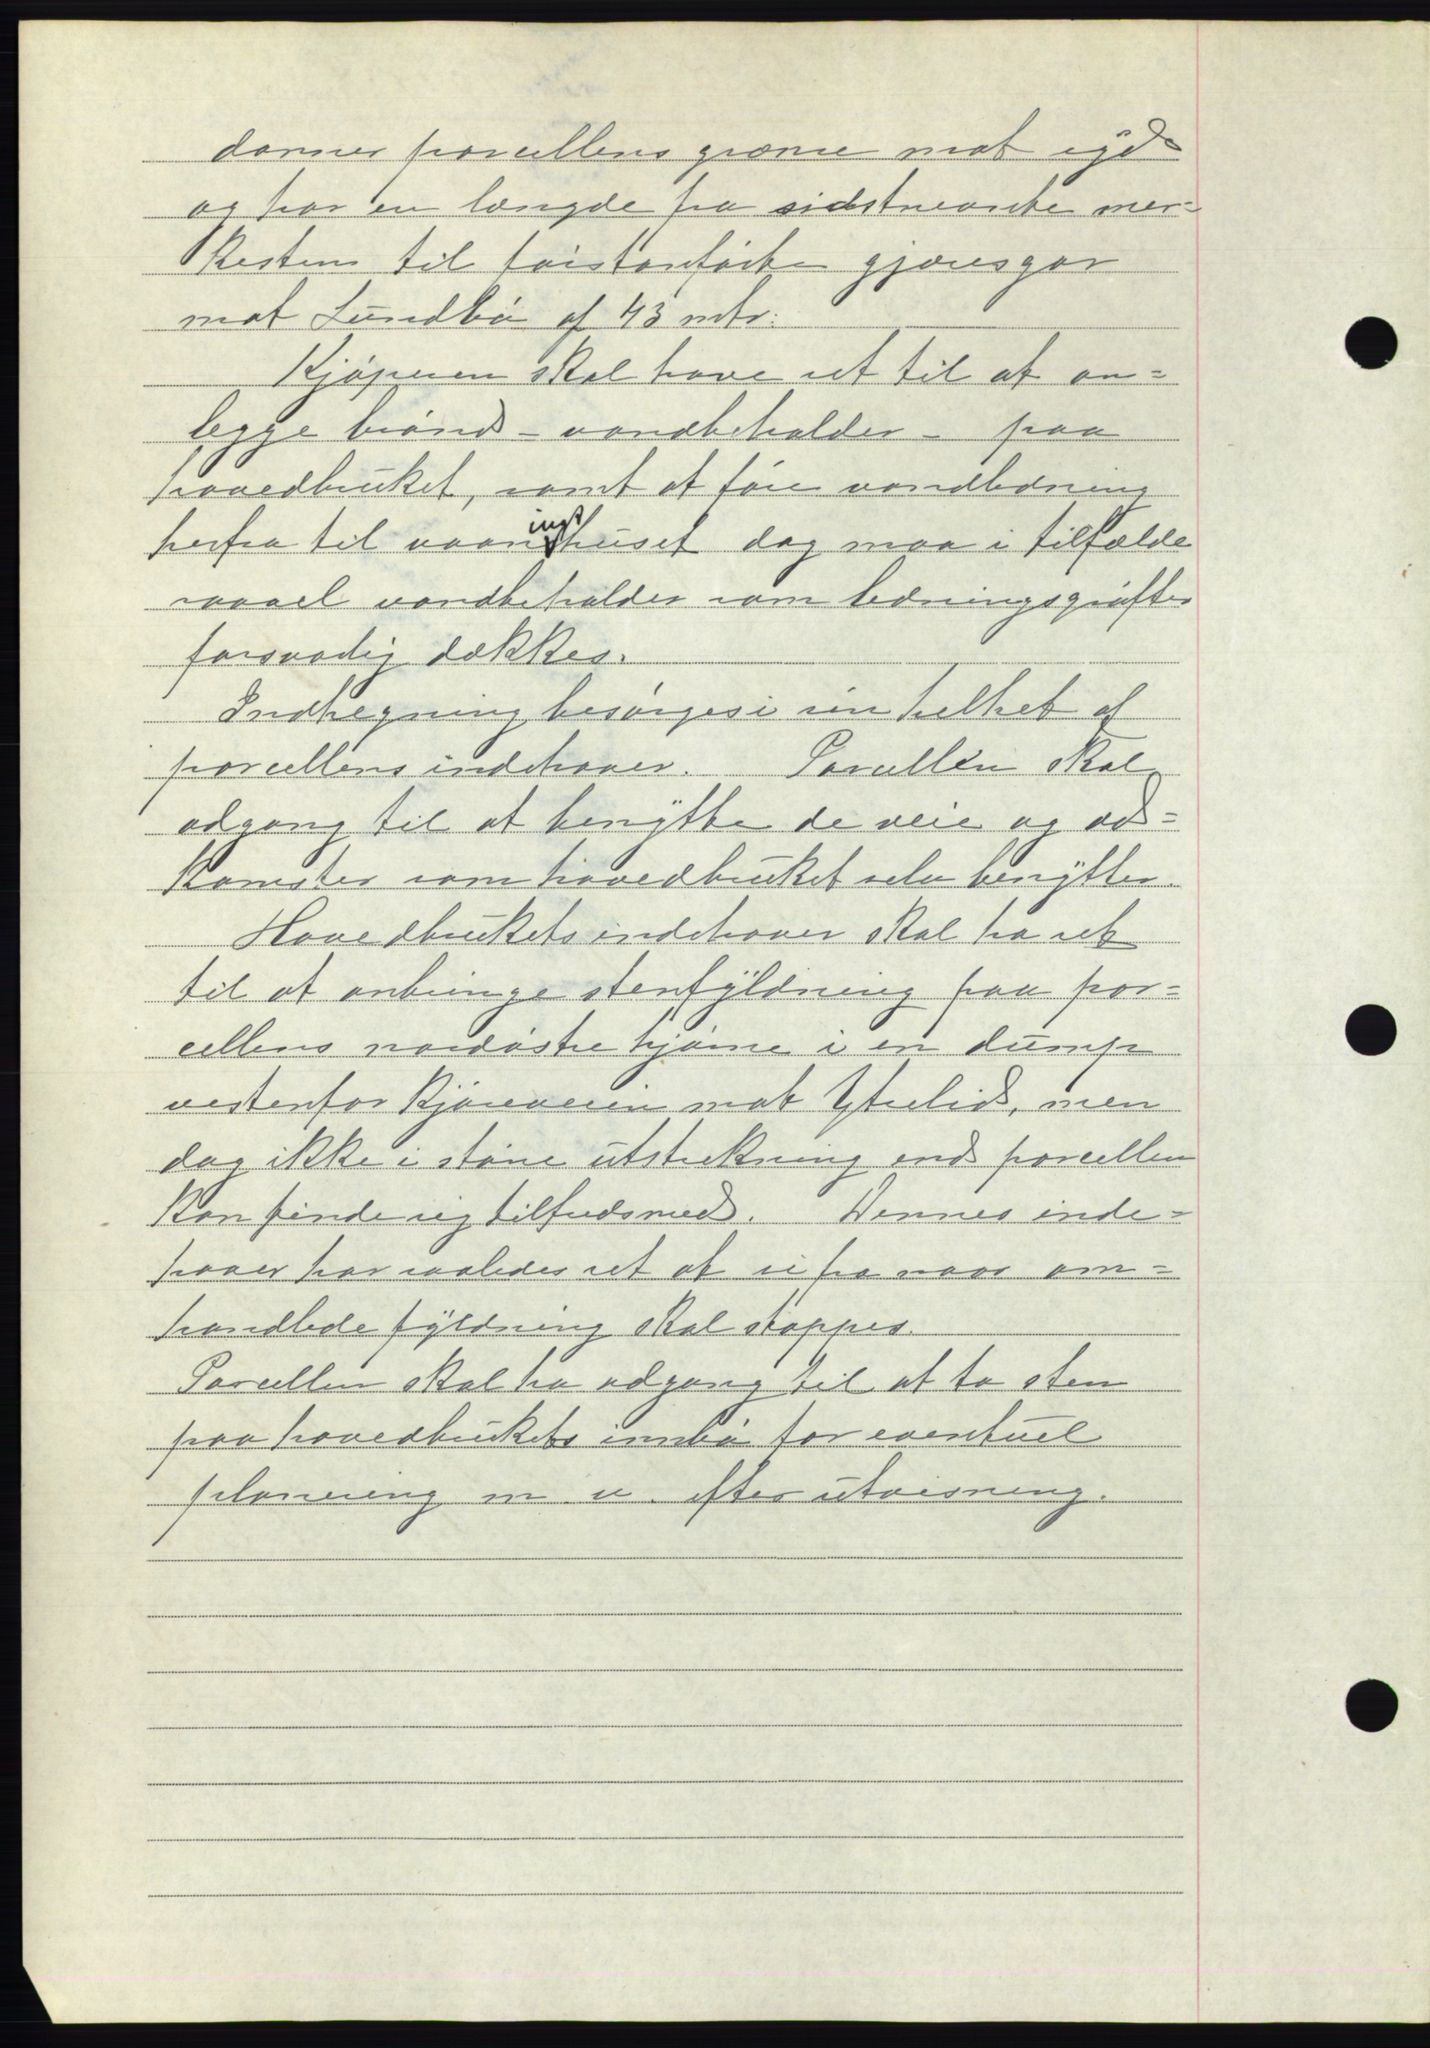 danner parcellens grænse mot syd
og har en længde fra sidstnevnte mer=
kesten til førstanførte gjæresgar
mot Lundbø af 43 mtr.
Kjøperen skal have ret til at an=
legge brønd - vandbeholder - paa
hovedbruket, samt at føre vandledning
herfra til vaaningshuset dog maa i tilfælde
saavel vandbeholder som ledningsgrøfter
forsvarlig dækkes.
Indhegning besørges i sin helhet af
parcellens indehaver. Parcellen skal
adgang til at benytte de veie og ad=
komster som hovedbruket selv benytter.
Hovedbrukets indehaver skal ha ret
til at anbringe stenfyldning paa par=
cellens nordøstre hjørne i en dump
vestenfor kjøreveien mot Ytrelid, men
dog ikke i større utstrekning end parcellen
kan finde sig tilfredsmed. Dennes inde=
haver har saaledes ret at si fra naar om=
handlede fyldning skal stoppes.
Parcellen skal ha adgang til at ta sten
paa hovedbrukets innbø for eventuel
planering m. v. efter utvisning.